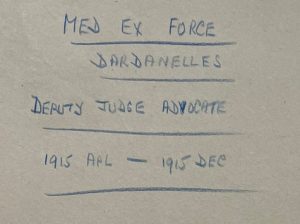 MED EX FORCE
DARDANELLES
DEPUTY JUDGE ADVOCATE
1915 APL — 1915 DEC